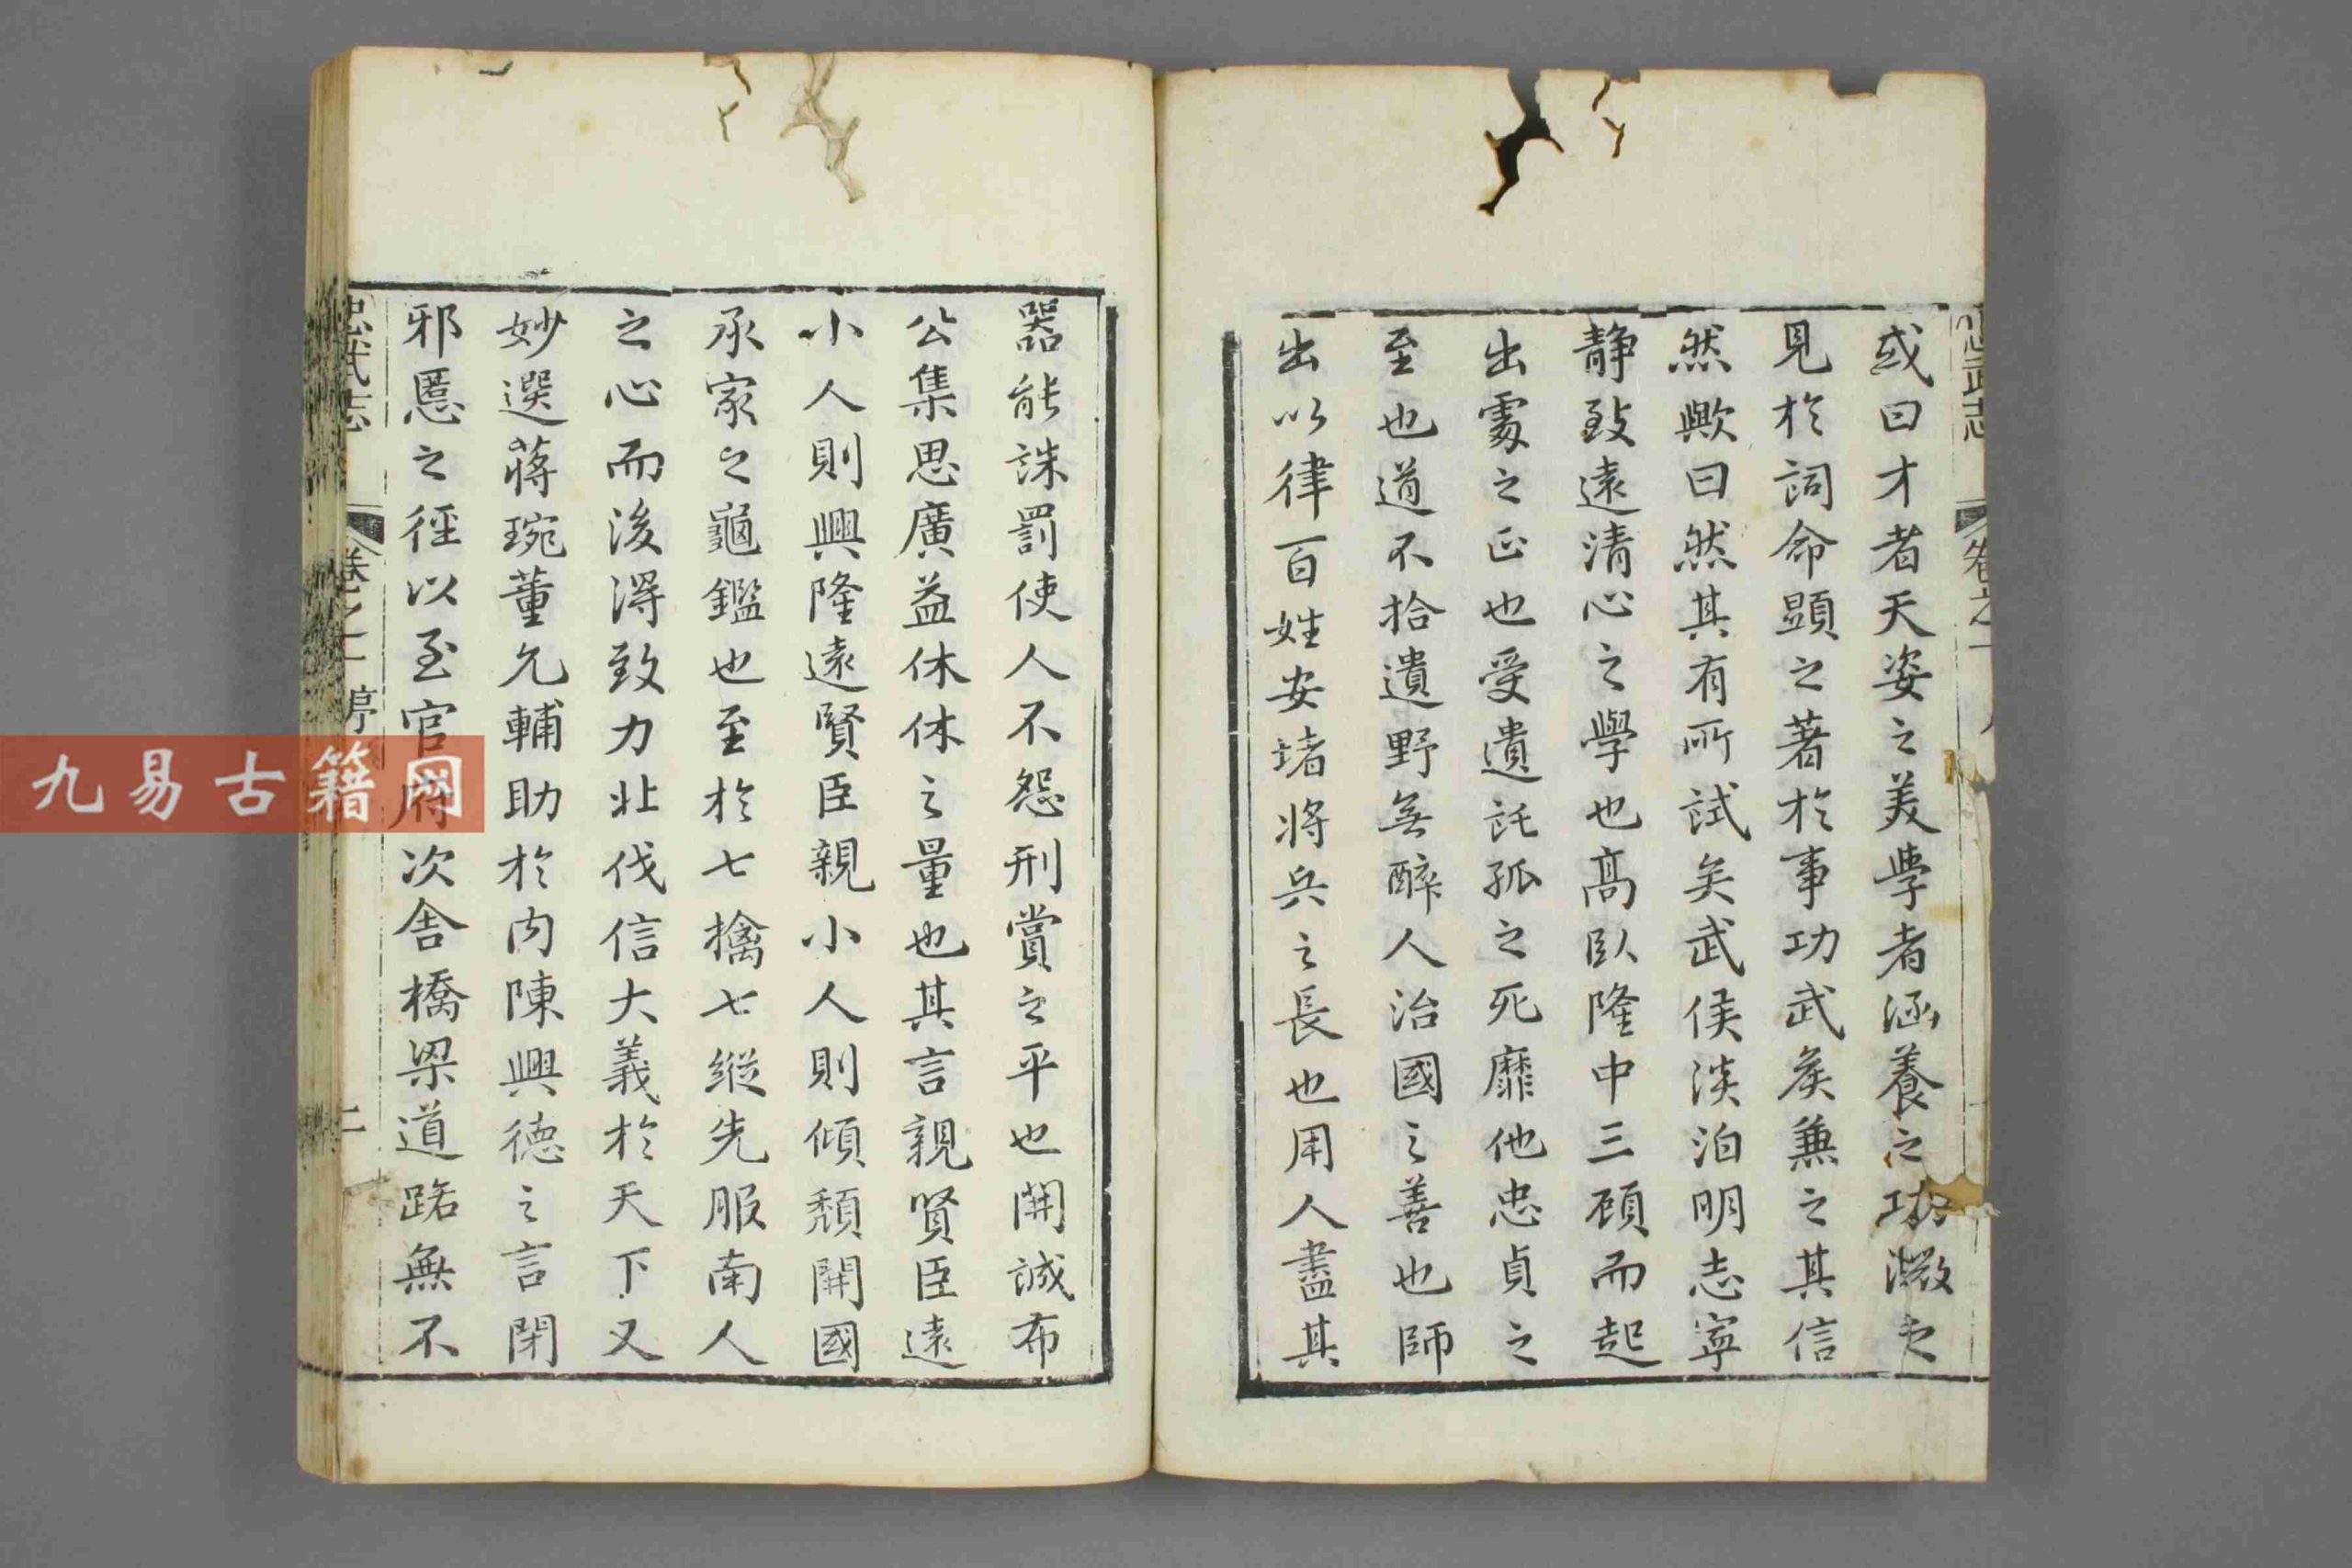 或曰才者天姿之美學者涵養之功微之
見於詞命顯之著於事功武矦兼之其信
然歟曰然其有所試矣武侯淡泊明志寧
靜致遠清心之學也高臥隆中三顧而起
出處之正也受遺託孤之死靡他忠貞之
至也道不拾遺野無醉人治國之善也師
出以律百姓安堵將兵之長也用人盡其
器能誅罰使人不怨刑賞之平也開誠布
公集思廣益休休之量也其言親賢臣遠
小人則興隆遠賢臣親小人則傾頽開國
承家之龜鑑也至於七擒七縱先服南人
之心而後得致力北伐信大義於天下又
妙選蔣琬董允輔助於內陳興德之言閉
邪慝之徑以至官府次舍橋梁道路無不
忠武志
九易古籍网